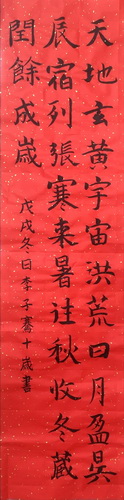 天地玄黃宇宙洪荒日月盈昃
辰宿列張寒来暑往秋收冬藏
閏餘成嵗
戊戌冬日李子騫十嵗書